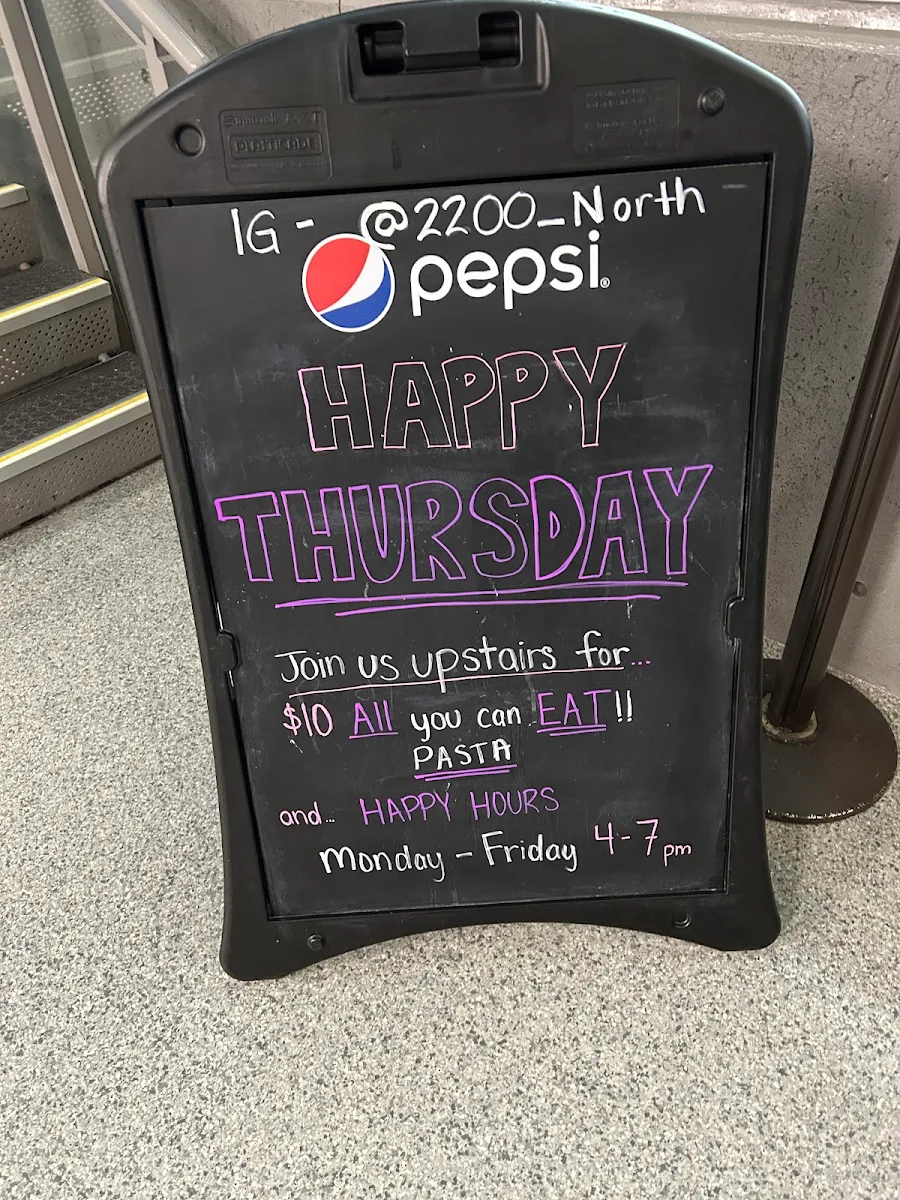 Signicade
PLASTICADE
IG - @2200_North
pepsi®
HAPPY
THURSDAY
Join us upstairs for...
$10 All you can EAT!!
PASTA
and... HAPPY HOURS
Monday - Friday 4-7pm